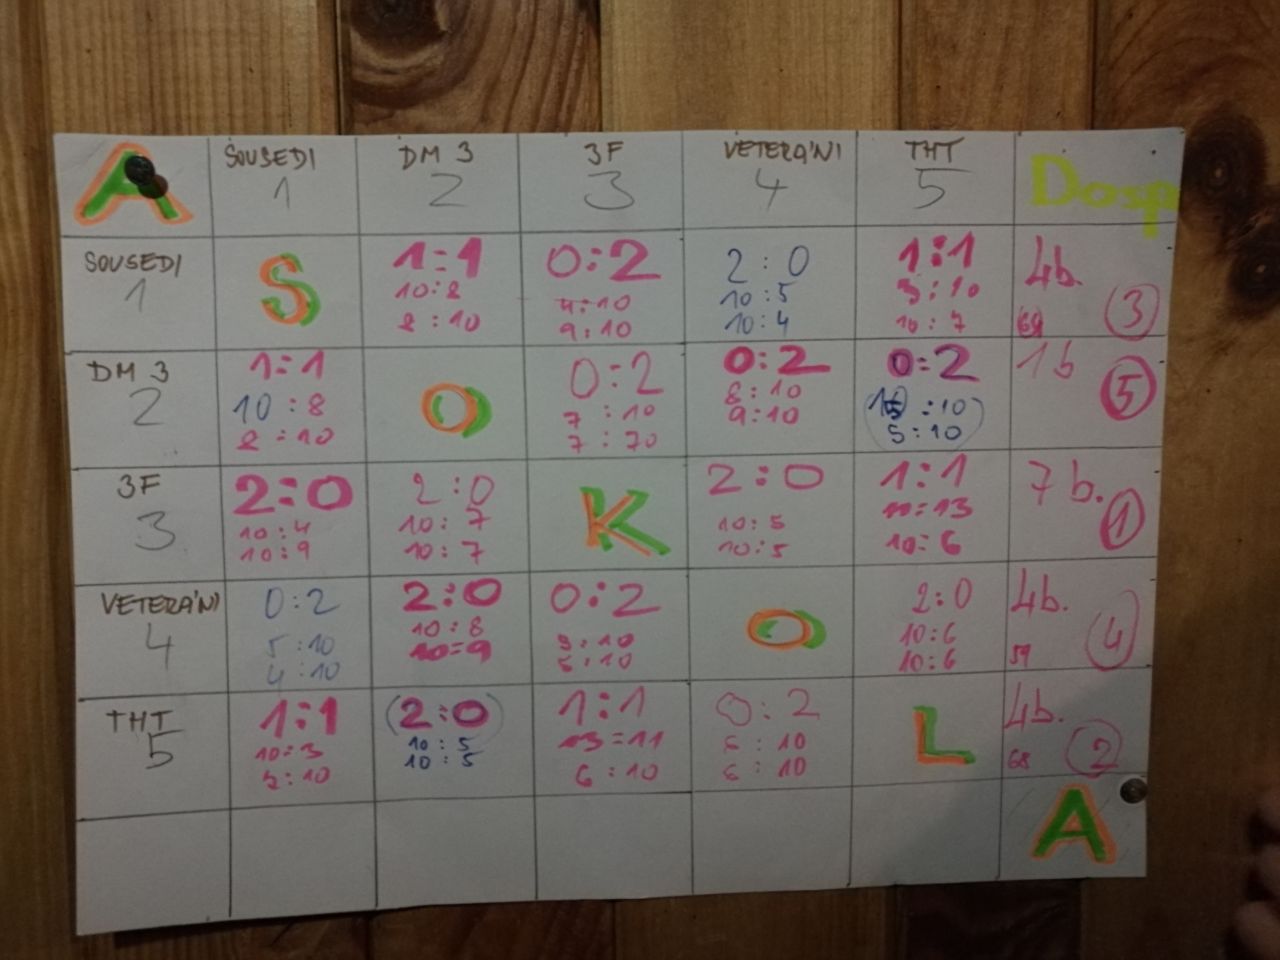 A
SOUSEDI
1
DM 3
2
3F
3
VETERÁNI
4
THT
5
Dosp
SOUSEDI
1
S
1:1
10:8
8:10
0:2
4:10
9:10
2:0
10:5
10:4
1:1
3:10
10:7
4b.
69
3
DM 3
2
1:1
10:8
8:10
O
0:2
7:10
7:10
0:2
8:10
9:10
0:2
:10
5:10
1b
5
3F
3
2:0
10:4
10:9
2:0
10:7
10:7
K
2:0
10:5
10:5
1:1
10:6
7b.
1
VETERÁNI
4
0:2
5:10
4:10
2:0
10:8
10:9
0:2
5:10
5:10
O
2:0
10:6
10:6
4b.
59
4
THT
5
1:1
10:3
7:10
2:0
10:5
10:5
1:1
13:11
6:10
0:2
6:10
6:10
L
4b.
68
2
A